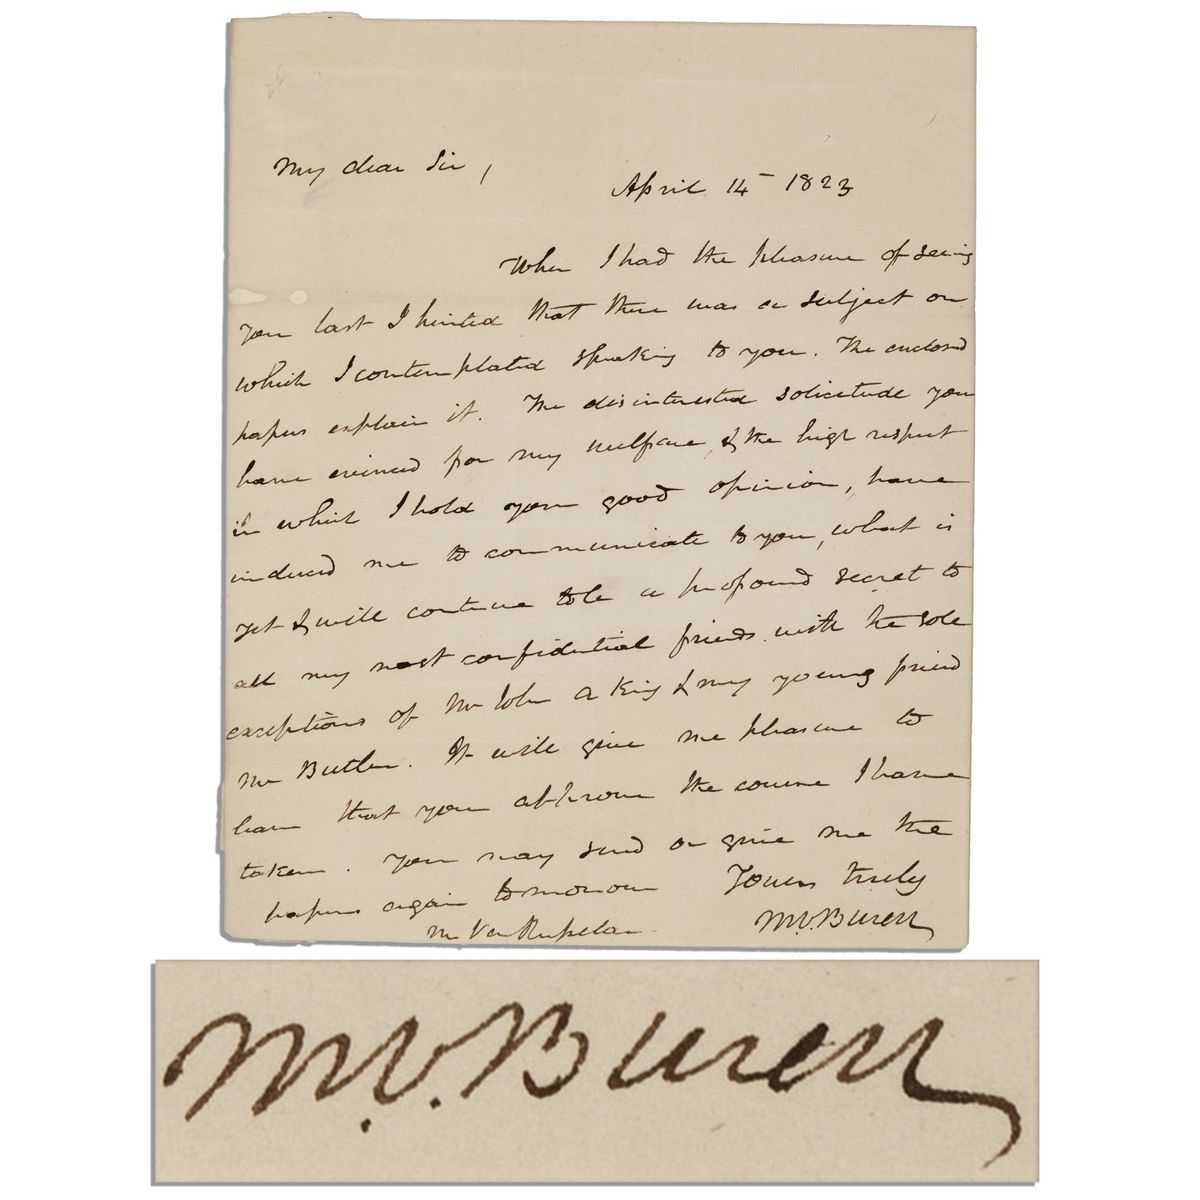 My dear Sir,
April 14 1823
When I had the pleasure of seeing
you last I hinted that there was a subject on
which I contemplated speaking to you. The enclosed
papers explain it. The disinterested solicitude you
have evinced for my welfare, & the high respect
in which I hold your good opinion, have
induced me to communicate to you, what is
yet & will continue to be a profound secret to
all my most confidential friends with the sole
exceptions of Mr John A King & my young friend
Mr Butler. It will give me pleasure to
learn that you approve the course I have
taken. You may send or give me the
papers again tomorrow Yours truly
Mr Van M.V.Buren
M.V.Buren